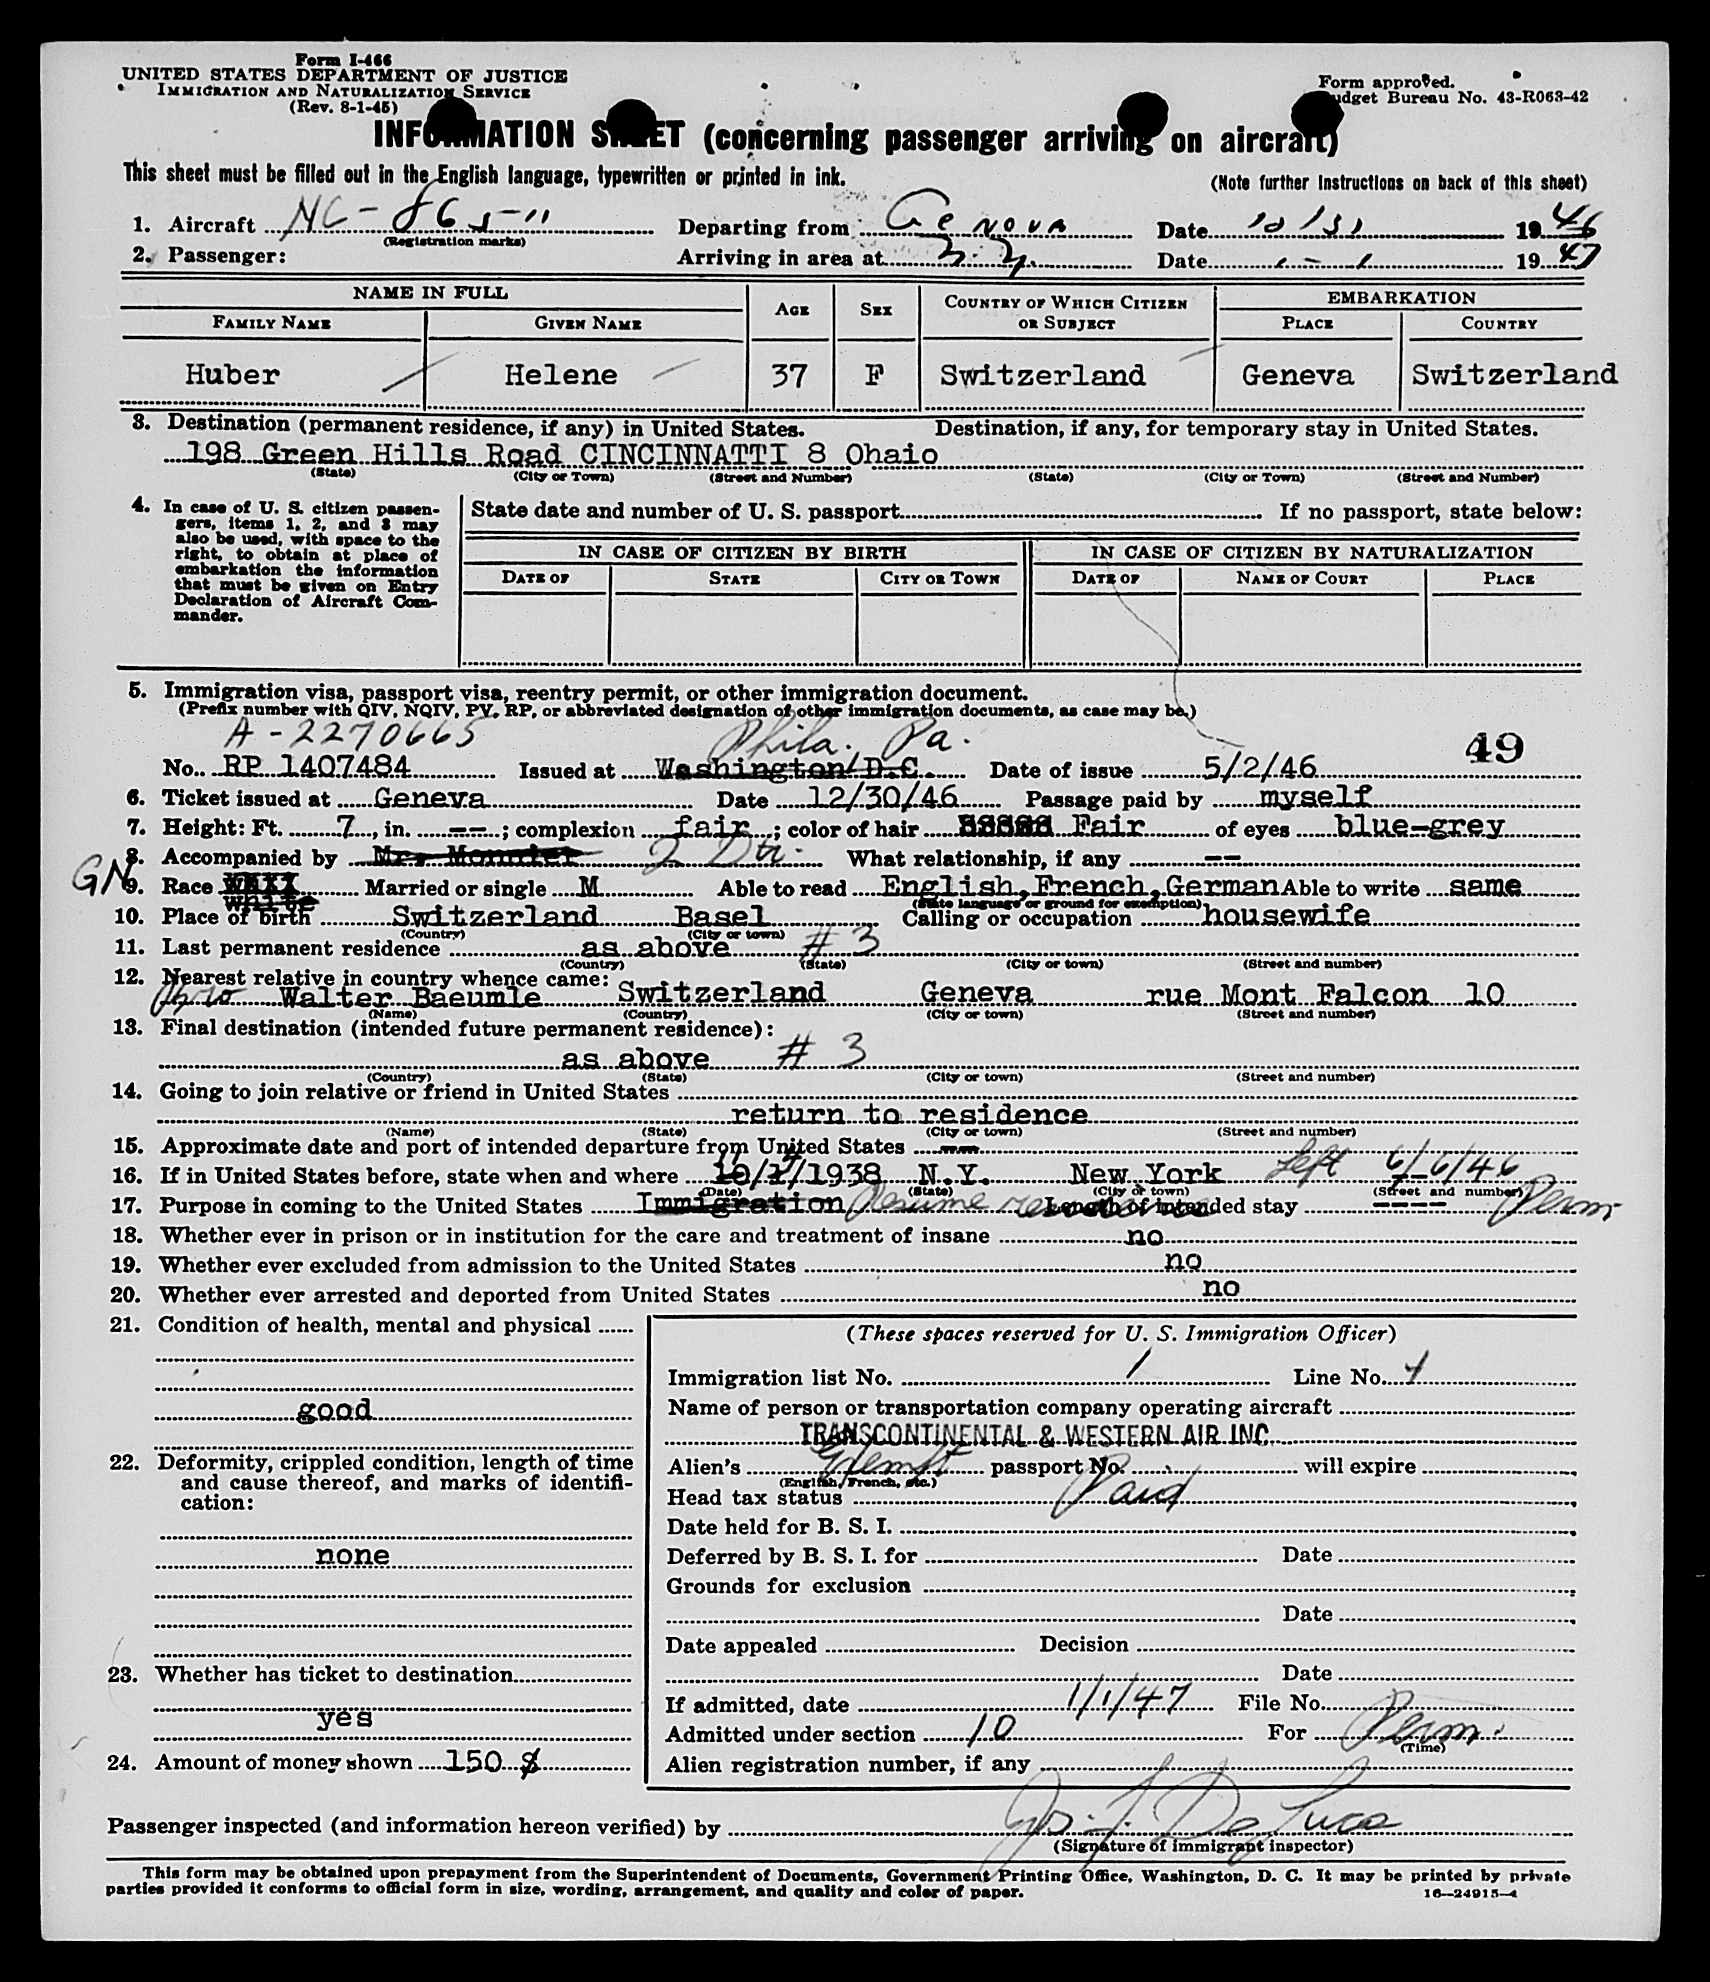 Form I-466
UNITED STATES DEPARTMENT OF JUSTICE
IMMIGRATION AND NATURALIZATION SERVICE
(Rev. 8-1-45)
Form approved.
Budget Bureau No. 43-R063-42
INFORMATION SHEET (concerning passenger arriving on aircraft)
This sheet must be filled out in the English language, typewritten or printed in ink.
(Note further instructions on back of this sheet)
1. Aircraft NC-86511 Departing from Genova Date 12/31 1946
(Registration marks)
2. Passenger: Arriving in area at N.Y. Date 1-1 1947
NAME IN FULL
FAMILY NAME GIVEN NAME AGE SEX COUNTRY OF WHICH CITIZEN OR SUBJECT EMBARKATION PLACE COUNTRY
Huber Helene 37 F Switzerland Geneva Switzerland
3. Destination (permanent residence, if any) in United States. Destination, if any, for temporary stay in United States.
198 Green Hills Road CINCINNATTI 8 Ohaio
(State) (City or Town) (Street and Number) (State) (City or Town) (Street and Number)
4. In case of U. S. citizen passengers, items 1, 2, and 3 may also be used, with space to the right, to obtain at place of embarkation the information that must be given on Entry Declaration of Aircraft Commander.
State date and number of U. S. passport If no passport, state below:
IN CASE OF CITIZEN BY BIRTH IN CASE OF CITIZEN BY NATURALIZATION
DATE OF STATE CITY OR TOWN DATE OF NAME OF COURT PLACE
5. Immigration visa, passport visa, reentry permit, or other immigration document.
(Prefix number with QIV, NQIV, PV, RP, or abbreviated designation of other immigration documents, as case may be.)
A-2270665 Phila. Pa. 49
No. RP 1407484 Issued at Washington D.C. Date of issue 5/2/46
6. Ticket issued at Geneva Date 12/30/46 Passage paid by myself
7. Height: Ft. 7, in. --; complexion fair; color of hair Fair of eyes blue-grey
8. Accompanied by Mrs Monnier 2 Dtr. What relationship, if any --
GN
9. Race white Married or single M Able to read English,French,German Able to write same
(State language or ground for exemption)
10. Place of birth Switzerland Basel Calling or occupation housewife
(Country) (City or town)
11. Last permanent residence as above # 3
(Country) (State) (City or town) (Street and number)
12. Nearest relative in country whence came:
Bro Walter Baeumle Switzerland Geneva rue Mont Falcon 10
(Name) (Country) (City or town) (Street and number)
13. Final destination (intended future permanent residence):
as above # 3
(Country) (State) (City or town) (Street and number)
14. Going to join relative or friend in United States
return to residence
(Name) (State) (City or town) (Street and number)
15. Approximate date and port of intended departure from United States ---
16. If in United States before, state when and where 11/4/1938 N.Y. New York left 6/6/46
(Date) (State) (City or town) (Street and number)
17. Purpose in coming to the United States Immigration Resume residence Length of intended stay ---- Perm
18. Whether ever in prison or in institution for the care and treatment of insane no
19. Whether ever excluded from admission to the United States no
20. Whether ever arrested and deported from United States no
21. Condition of health, mental and physical
good
22. Deformity, crippled condition, length of time and cause thereof, and marks of identification:
none
23. Whether has ticket to destination
yes
24. Amount of money shown 150 $
(These spaces reserved for U. S. Immigration Officer)
Immigration list No. 1 Line No. 4
Name of person or transportation company operating aircraft
TRANSCONTINENTAL & WESTERN AIR INC.
Alien's Exempt passport No. will expire
(English, French, etc.)
Head tax status Paid
Date held for B. S. I.
Deferred by B. S. I. for Date
Grounds for exclusion
Date
Date appealed Decision
Date
If admitted, date 1/1/47 File No.
Admitted under section 10 For Perm.
(Time)
Alien registration number, if any
Passenger inspected (and information hereon verified) by Jos. J. De Luca
(Signature of immigrant inspector)
This form may be obtained upon prepayment from the Superintendent of Documents, Government Printing Office, Washington, D. C. It may be printed by private
parties provided it conforms to official form in size, wording, arrangement, and quality and color of paper.
16—24915-4